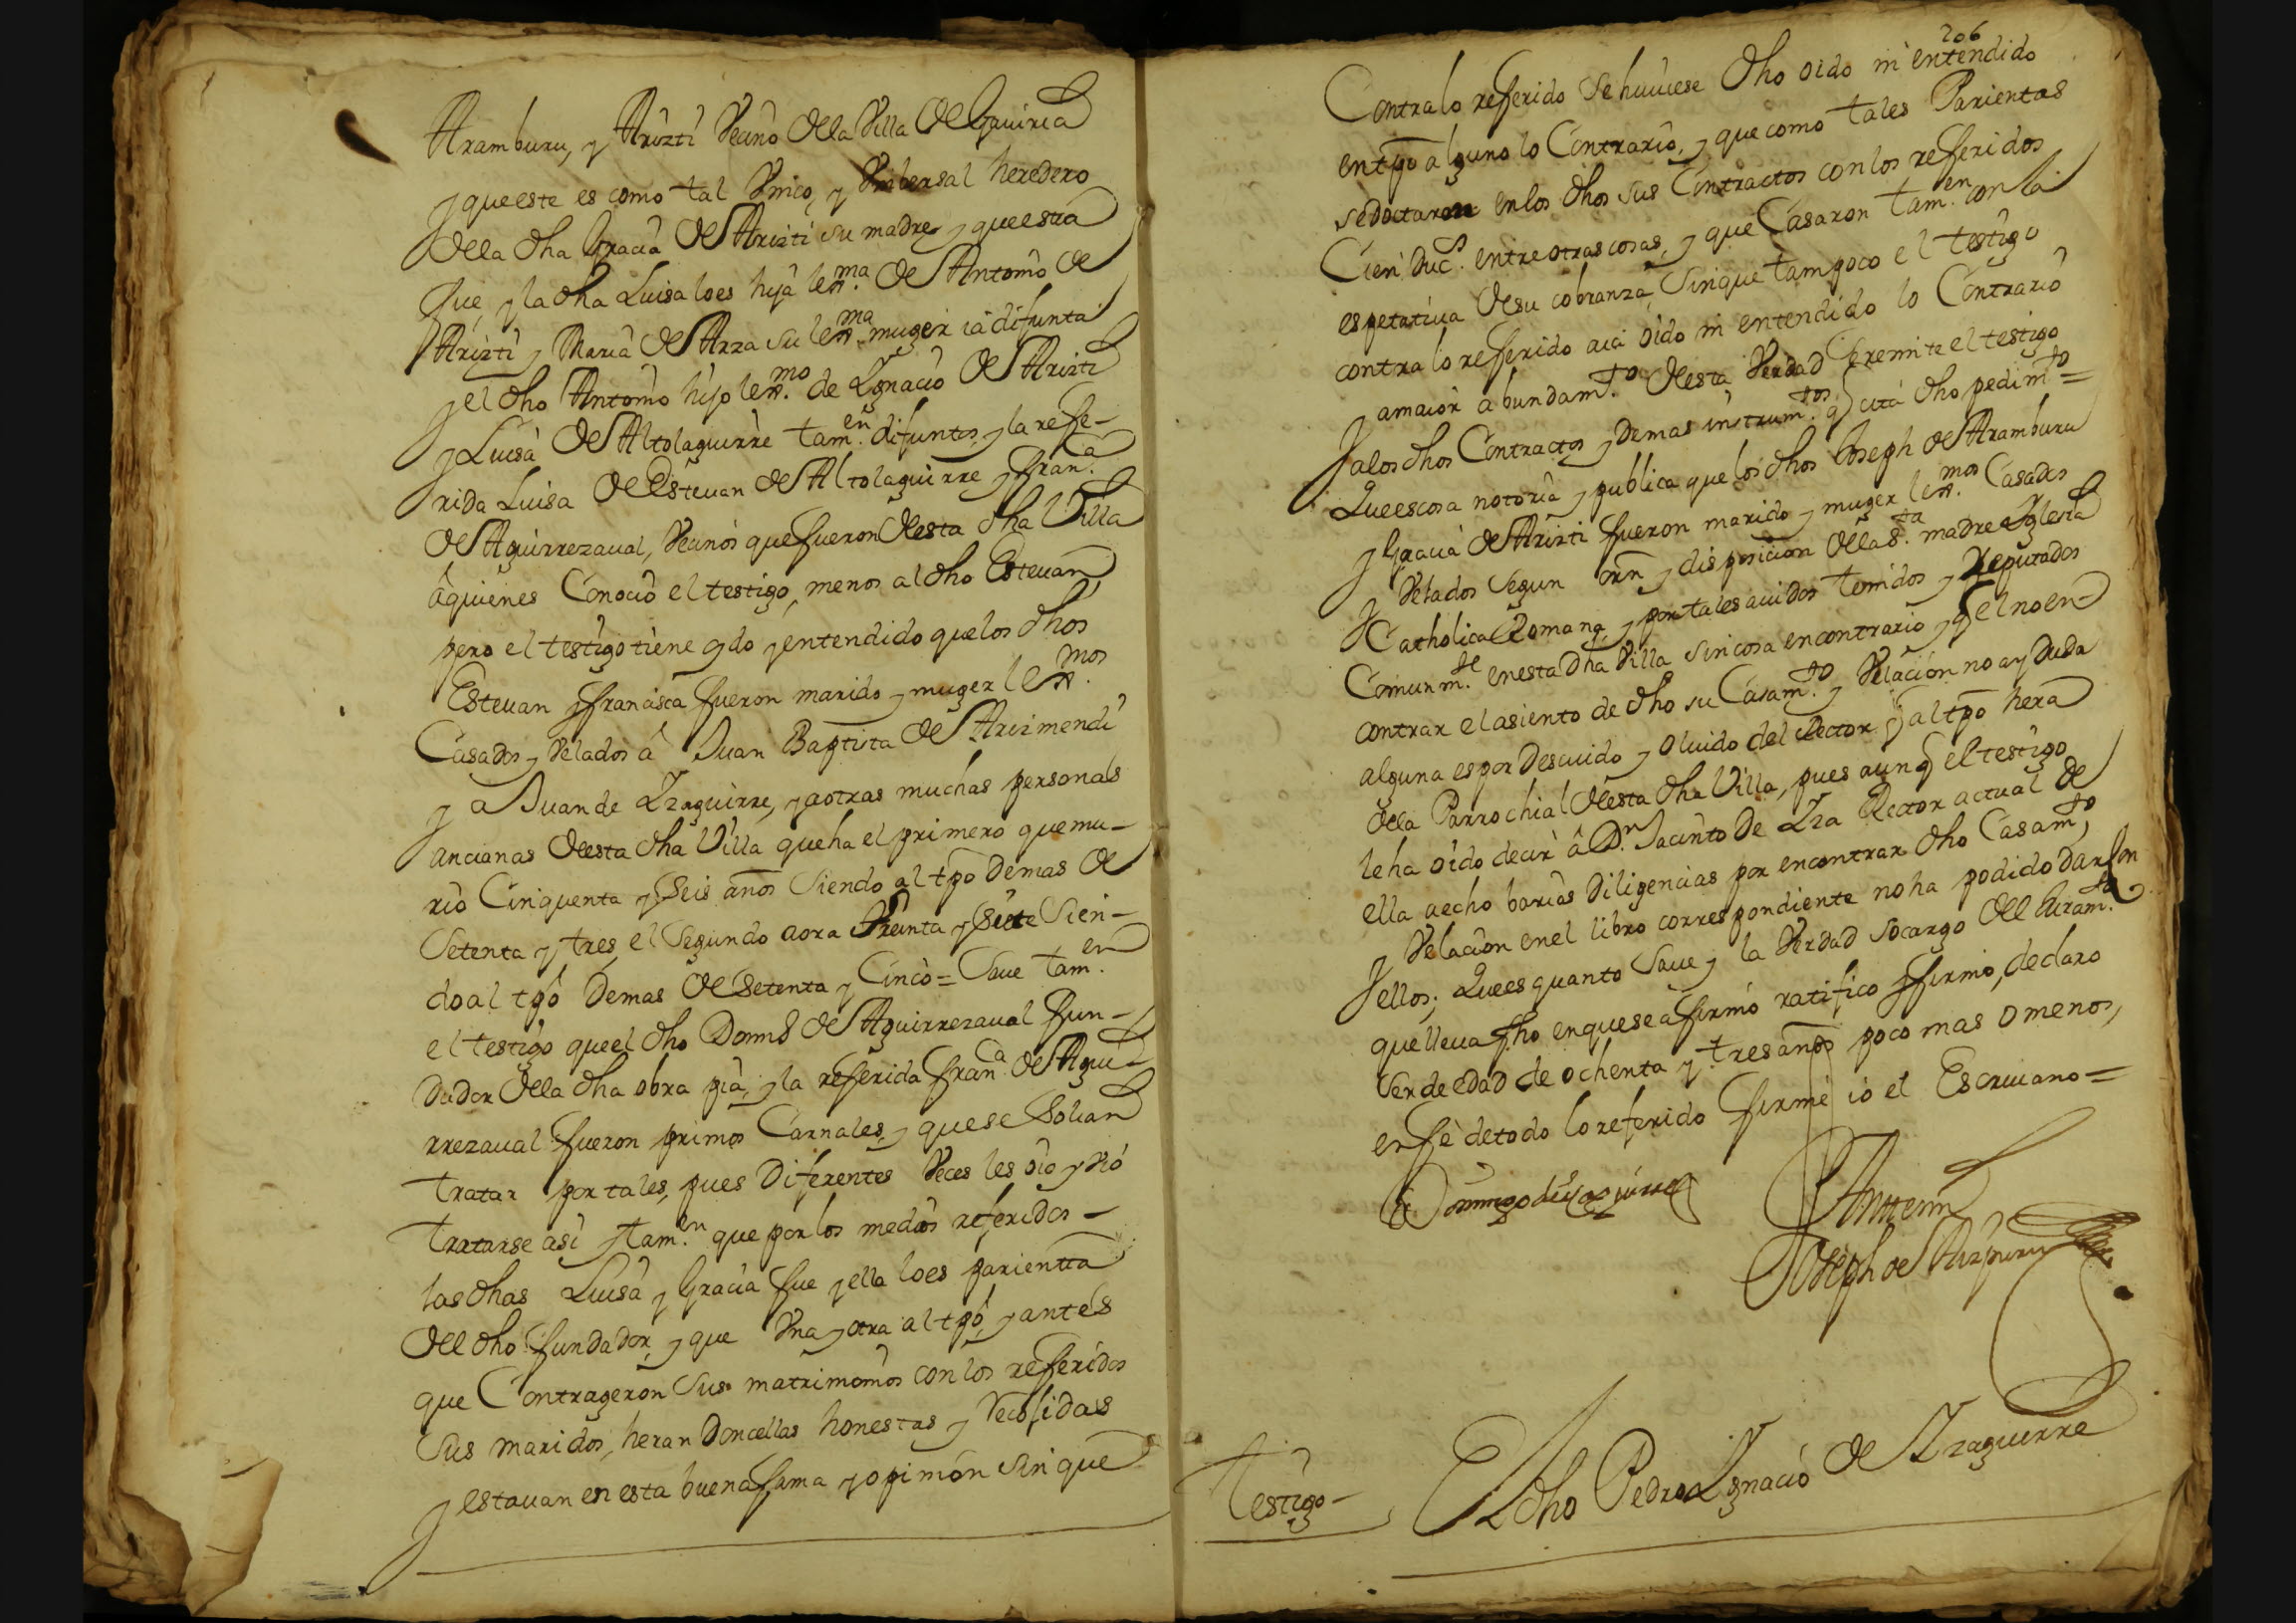 Aramburu, y Arizti Vecino de la Villa de Gaviria
y que este es como tal Unico, y Unibersal heredero
de la dha Gracia de Arizti su madre, y que esta
fue, y la dha Luisa lo es hija lexma. de Antonio de
Arizti y Maria de Arza su lexma. muger ia difunta
y el dho Antonio hijo lexmo. de Ygnacio de Arizti
y Luisa de Altolaguirre tamen. difuntos, y la refe-
rida Luisa de Estevan de Altolaguirre y Franca.
de Aguirrezaval, Vecinos que fueron desta dha Villa
â quienes Conocio el testigo, menos al dho Estevan
pero el testigo tiene oydo y entendido que los dhos
Estevan y francisca fueron marido y muger lexmos.
Casados y Velados â Juan Baptista de Arizmendi
y a Juan de Yzaguirre, y a otras muchas personas
ancianas desta dha Villa que ha el primero que mu-
rio Cinquenta y Seis años Siendo al tpo Demas de
Setenta y tres, el Segundo aora treinta y Siete Sien-
do al tpo Demas de Setenta y Cinco = Save tamen.
el testigo que el dho Domo de Aguirrezaval fun-
dador de la dha obra pia, y la referida Franca de Agui-
rrezaval fueron primos Carnales, y que se Solian
tratar por tales, pues Diferentes Veces les oio y vió
tratarse asi y tamen. que por los medios referidos -
las dhas Luisa y Gracia fue y ella lo es parienta
del dho fundador, y que Una y otra al tpo, y antes
que Contrageron Sus matrimonios con los referidos
Sus maridos, heran Doncellas honestas y recojidas
y estavan en esta buena fama y opinión sin que
206
Contra lo referido Se huviese dho oido ni entendido
en tpo alguno lo Contrario, y que como tales Parientas
se doctaron en los dhos sus Contractos con los referidos
Cien ducs. entre otras cosas, y que Casaron tamen. con la
espetativa de su cobranza, Sin que tampoco el testigo
contra lo referido aia oido ni entendido lo Contrario
y a maior abundamto. desta Verdad Se remite el testigo
a los dhos Contractos y Demas instrumtos. q cita dho pedimto =
Que es cosa notoria y publica que los dhos Joseph de Aramburu
y Gracia de Arizti fueron marido y muger lexmos. Casados
y Velados Segun orn y disposicion de la Sta. madre Yglesia
Catholica Romana, y por tales avidos tenidos y Reputados
Comunmte. en esta Dha Villa sin cosa en contrario y q el no en-
contrar el asiento de dho su Casamto. y Velación no ay duda
alguna es por Descuido y olvido del Rector q al tpo hera
de la Parrochial desta dha Villa, pues aunq el testigo
le ha oido decir â Dn. Jacinto de Yza Rector actual de
ella aecho barias Diligencias por encontrar dho Casamto,
y Velacion en el libro correspondiente no ha podido dar con
ellos; Que es quanto Save y la Verdad So cargo del Juramto.
que lleva fho en que se afirmó ratifico y firmó, declaro
Ser de edad de ochenta y tres años poco mas o menos,
en fè de todo lo referido firmé io el Escrivano =
Domingo de Yzaguirre
Ante mi
Joseph de Aizpuru
Testigo - El dho Pedro Ygnacio de Yzaguirre